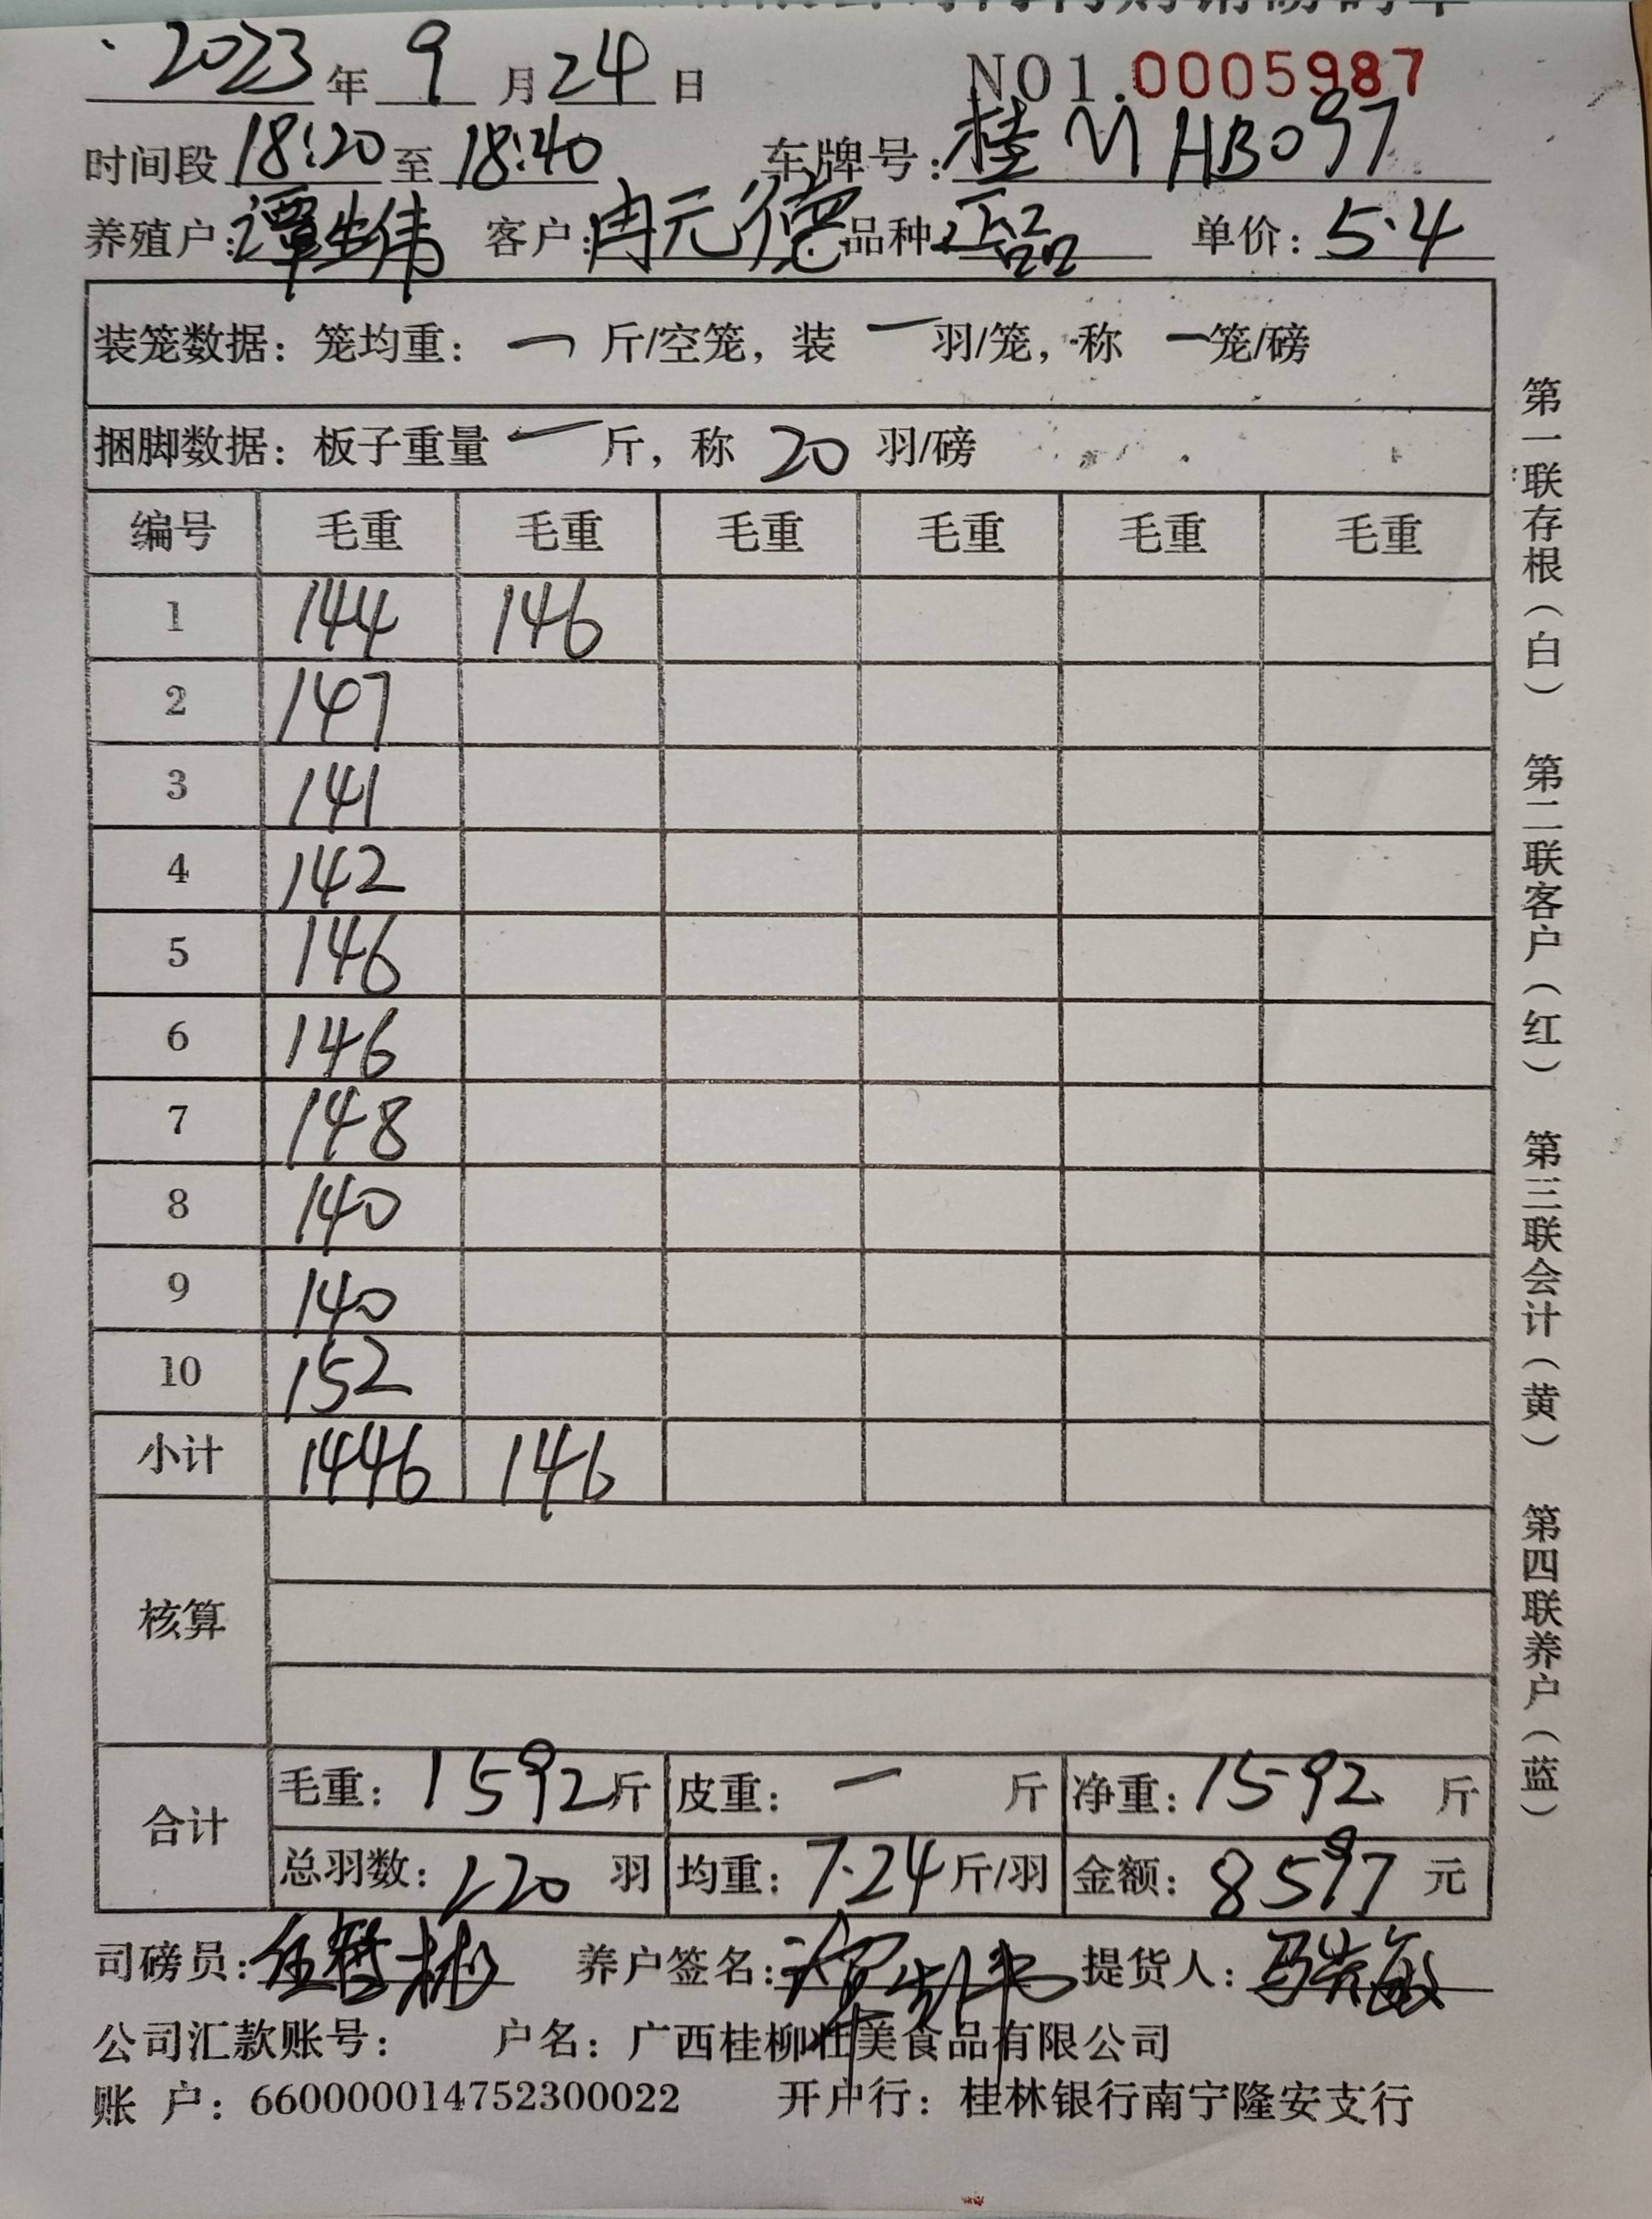 2023年 9 月24日 NO1.0005987
时间段 18:20 至 18:40 车牌号: 桂MHB097
养殖户: 谭生伟 客户: 冉元德 品种 正品 单价: 5.4
装笼数据: 笼均重: 一 斤/空笼, 装 一 羽/笼, 称 一笼/磅
捆脚数据: 板子重量 一 斤, 称 20 羽/磅
编号 毛重 毛重 毛重 毛重 毛重 毛重
1 144 146
2 147
3 141
4 142
5 146
6 146
7 148
8 140
9 140
10 152
小计 1446 146
核算
合计 毛重: 1592斤 皮重: 一 斤 净重: 1592 斤
总羽数: 220 羽 均重: 7.24斤/羽 金额: 8597 元
司磅员: 养户签名: 提货人:
公司汇款账号: 户名: 广西桂柳壮美食品有限公司
账 户: 660000014752300022 开户行: 桂林银行南宁隆安支行
第一联存根(白) 第二联客户(红) 第三联会计(黄) 第四联养户(蓝)